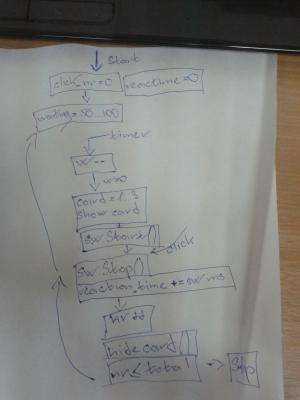 Start
click_nr=0 reactime=0
waiting=50..100
timer
w--
w=0
card=1..3
show card
sw.Start()
click
sw.Stop()
reaction_time += sw.ms
nr++
hide card()
nr<total
Stop